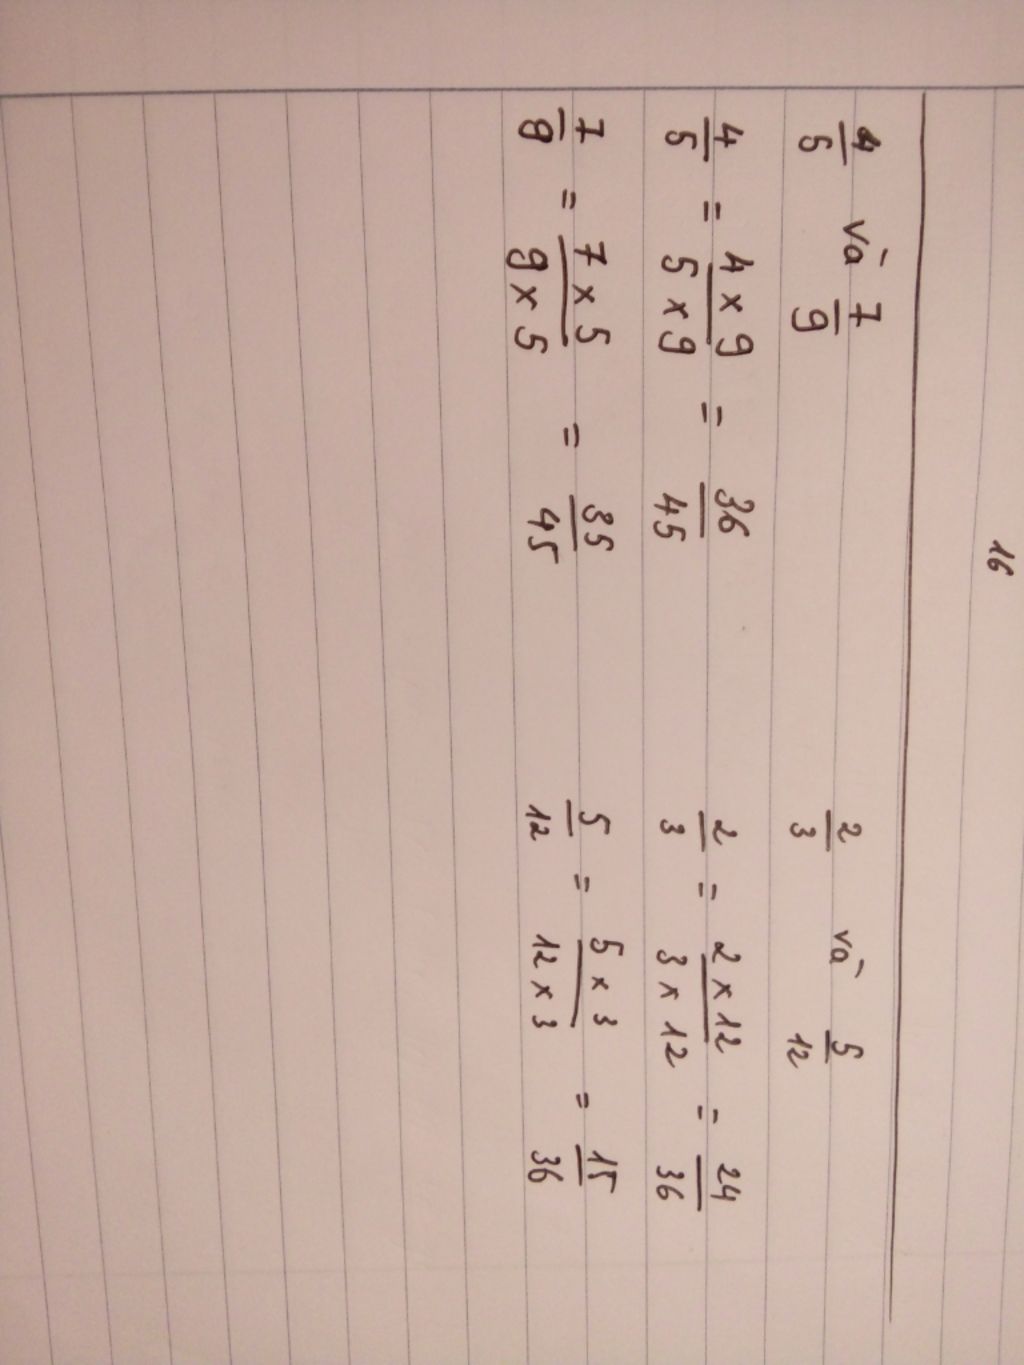 16
4/5 và 7/9
4/5 = 4 x 9 / 5 x 9 = 36/45
7/8 = 7 x 5 / 9 x 5 = 35/45
2/3 và 5/12
2/3 = 2 x 12 / 3 x 12 = 24/36
5/12 = 5 x 3 / 12 x 3 = 15/36